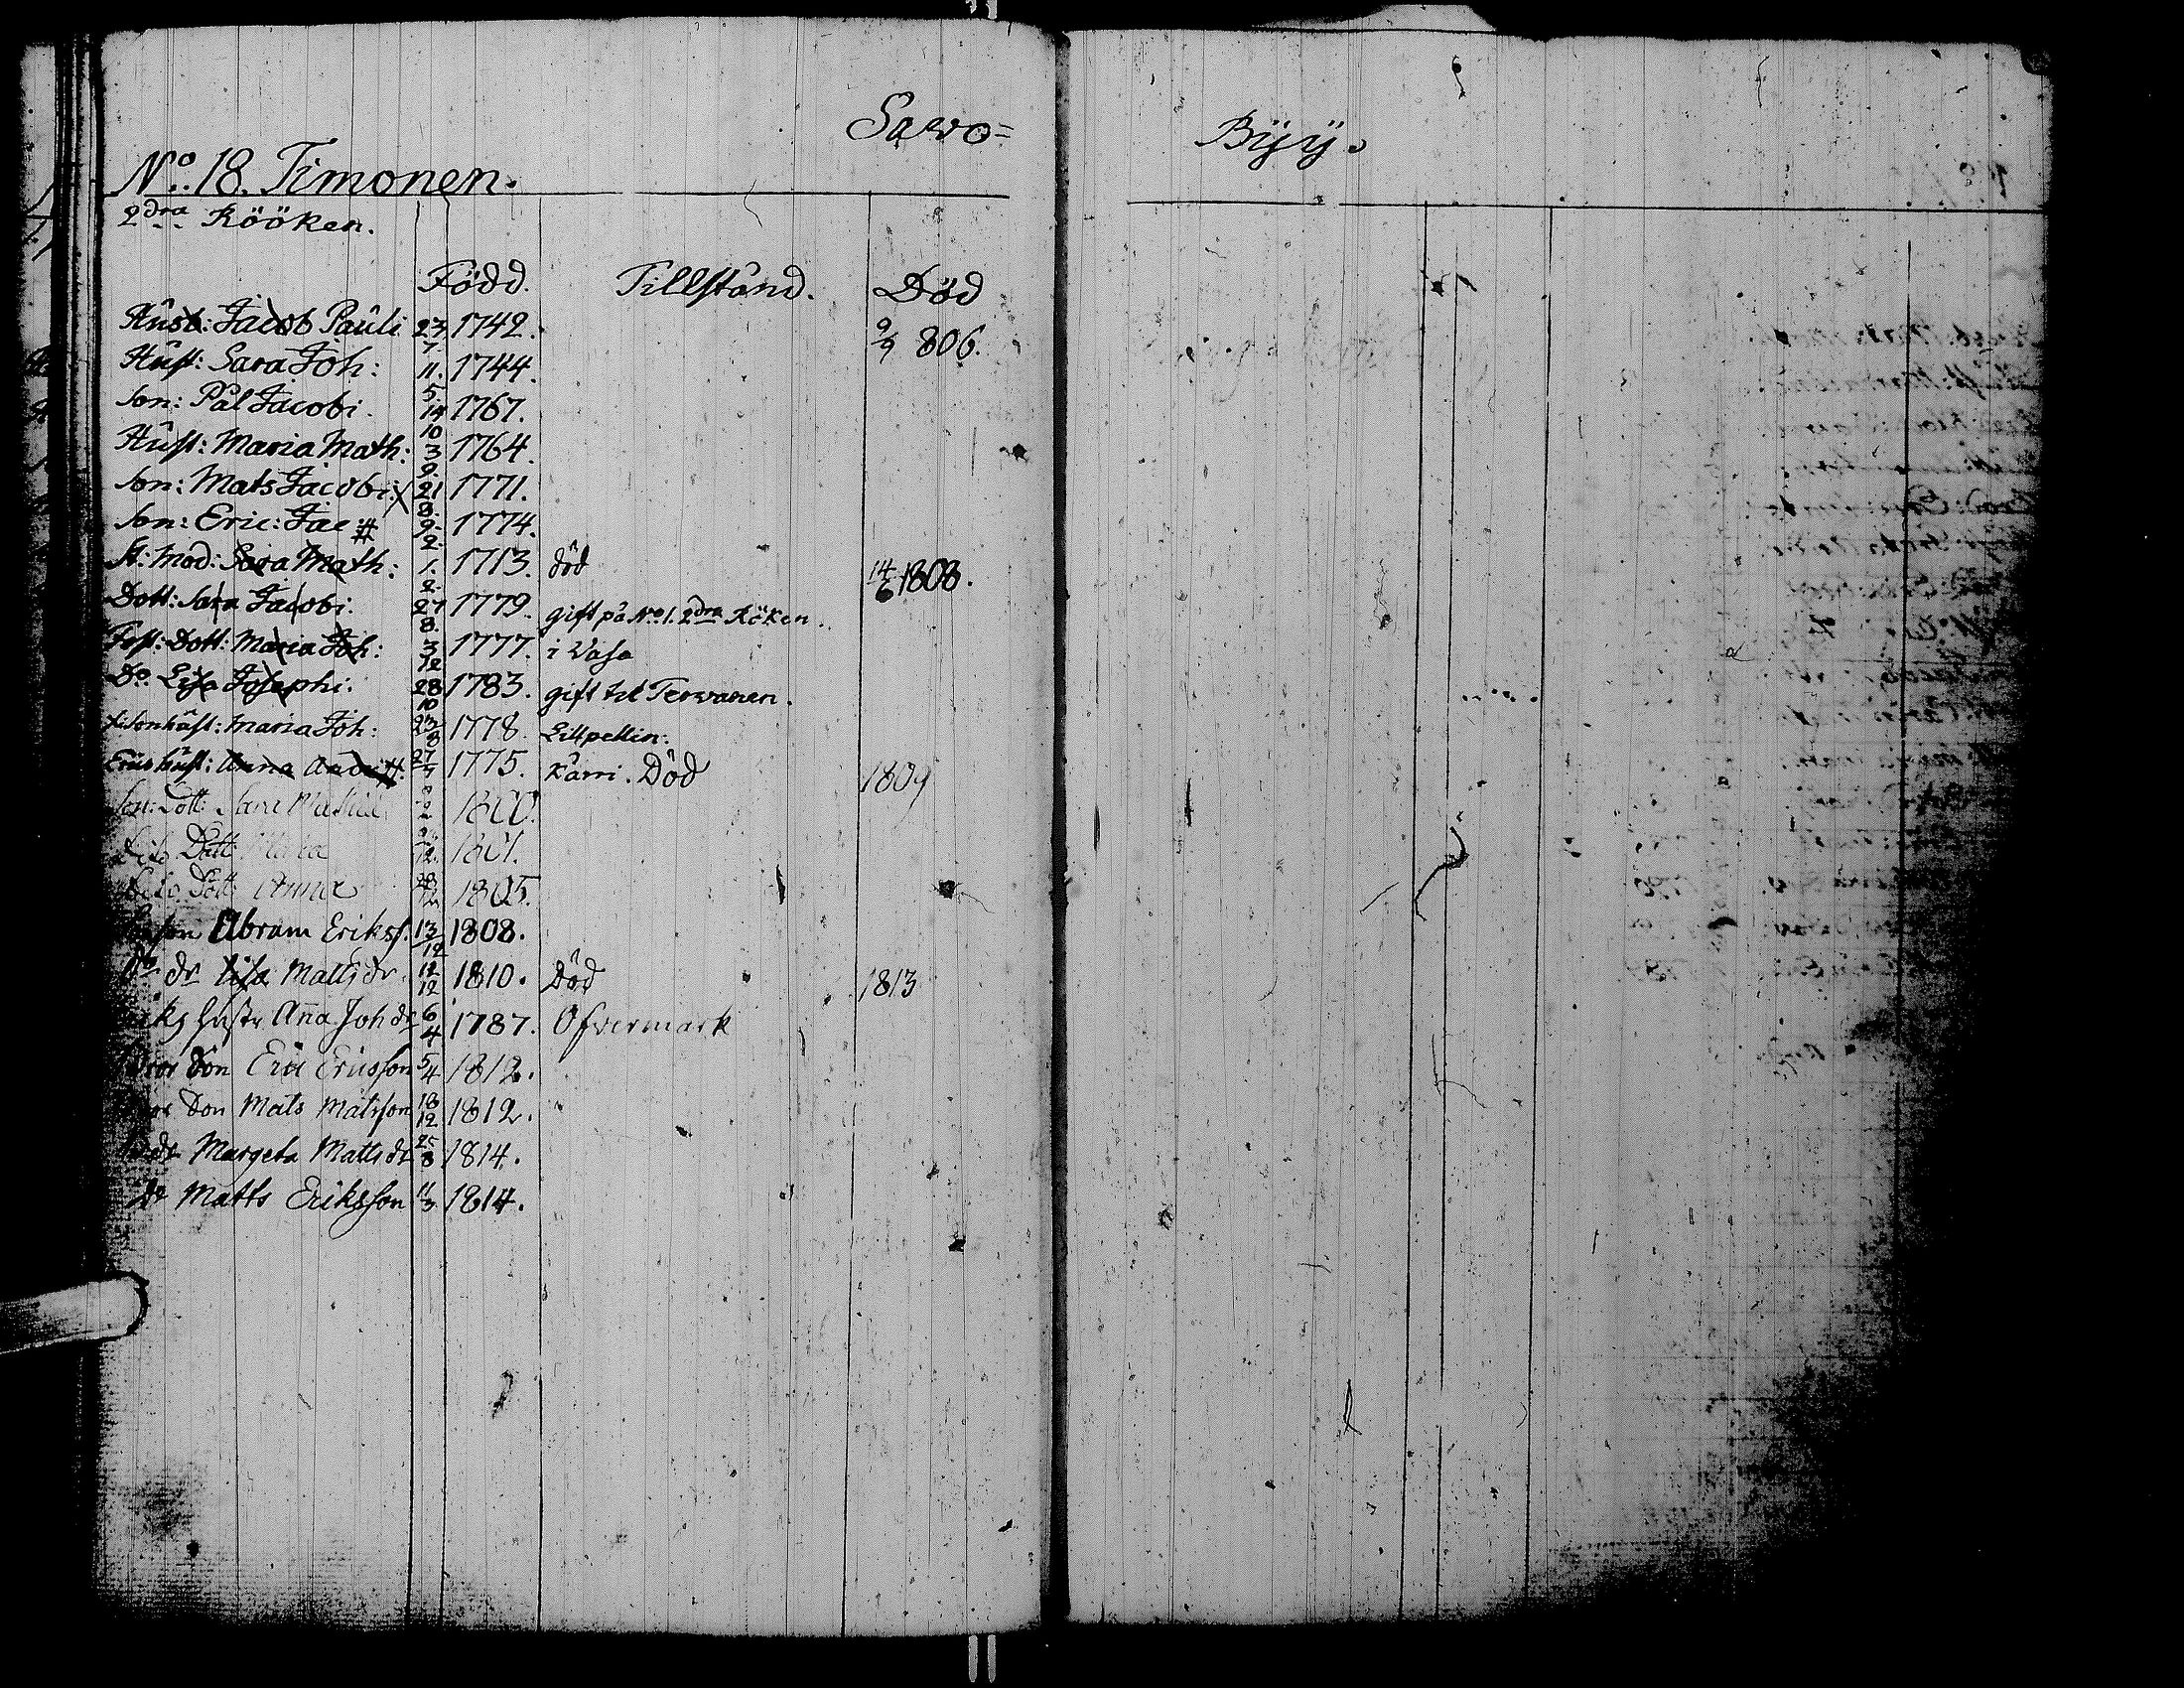 Sawo= Bÿÿ.
No. 18. Timonen.
2dra Rööken.
Född. Tillstånd. Död
Husb: Jacob Pauli 23/7 1742. 9/9 806.
Hust: Sara Joh: 11./5. 1744.
Son: Pål Jacobi. 14/10 1767.
Hust: Maria Math: 3/9. 1764.
Son: Mats Jacobi: 21/8. 1771.
Son: Eric: Jac # 9./2. 1774.
St: Mod: Sara Math: 1./2. 1713. död 14/6 1808.
Dott: Sara Jacobi. 27/8. 1779. gift på No 1. 2dra Röken.
Fost: Dott: Maria Joh: 3/12 1777. i Vasa
Do Lisa Josephi. 28/10 1783. gift til Terwanen.
hust: Maria Joh: 23/8 1778. Lillpellin:
Erics hust: Anna 27/7 1775. Kärri. Död 1809
Dott: 1800.
Dott: Maria 1801.
Dott: Anna 28/12 1805.
son Abram Erikss. 13/12 1808.
dr Lisa Mattsdr 12/12 1810. Död 1813
hustr Anna Joh dr 6/4 1787. Öfvermark
Son Eric Ericsson 5/4 1812.
Son Mats Matsson 18/12 1812.
dr Margeta Matts dr 25/8 1814.
Matts Eriksson 11/3 1814.